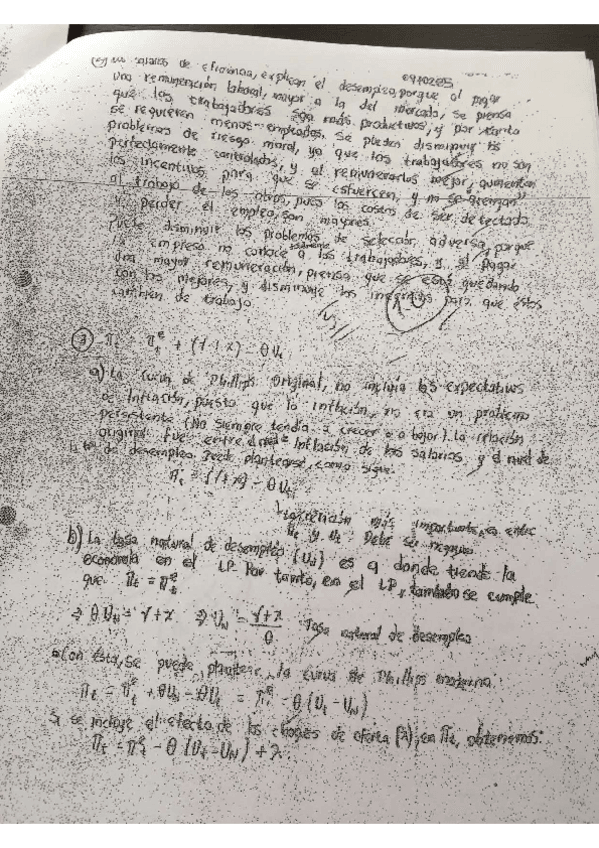 salarios de eficiencia, explican el desempleo, porque al pagar
una remuneración laboral, mayor a la del mercado, se piensa
que los trabajadores son más productivos, y por tanto
se requieren menos empleados. Se pueden disminuir los
problemas de riesgo moral, ya que los trabajadores no son
perfectamente controlados, y al remunerarlos mejor, aumentan
los incentivos para que se esfuercen, y no se
al trabajo de los otros, pues los costos de ser detectado
y perder el empleo, son mayores.
Puede disminuir los problemas de selección adversa, porque
la empresa no conoce totalmente a los trabajadores, y al pagar
una mayor remuneración, piensa que se está quedando
con los mejores, y disminuye los incentivos para que éstos
cambien de trabajo.
a) La curva de Phillips original, no incluía las expectativas
de inflación, puesto que la inflación, no era un problema
persistente (No siempre tendía a crecer o a bajar). La relación
original fue entre inflación de los salarios, y el nivel de
de desempleo. Puede plantearse, como sigue:
más importante, es entre
πt y ut. Debe ser
b) La tasa natural de desempleo (UN) es a donde tiende la
economía en el LP. Por tanto, en el LP, también se cumple
que πt = πt^e
Tasa natural de desempleo
Con ésta, se puede plantear, la curva de Phillips moderna:
πt = πt^e + θUN - θUt = πt^e - θ(Ut - UN)
Si se incluye el efecto de los choques de oferta (λ), en πt, obtenemos:
πt = πt^e - θ(Ut - UN) + λ.